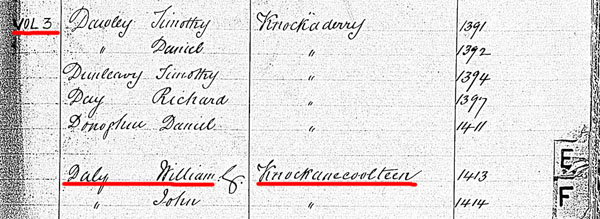 VOL 3 Dawley Timothy Knockaderry 1391
" Daniel " 1392
Dunleavy Timothy " 1394
Day Richard " 1397
Donoghue Daniel " 1411
Daly William Knockanecoolteen 1413
" John " 1414
E
F